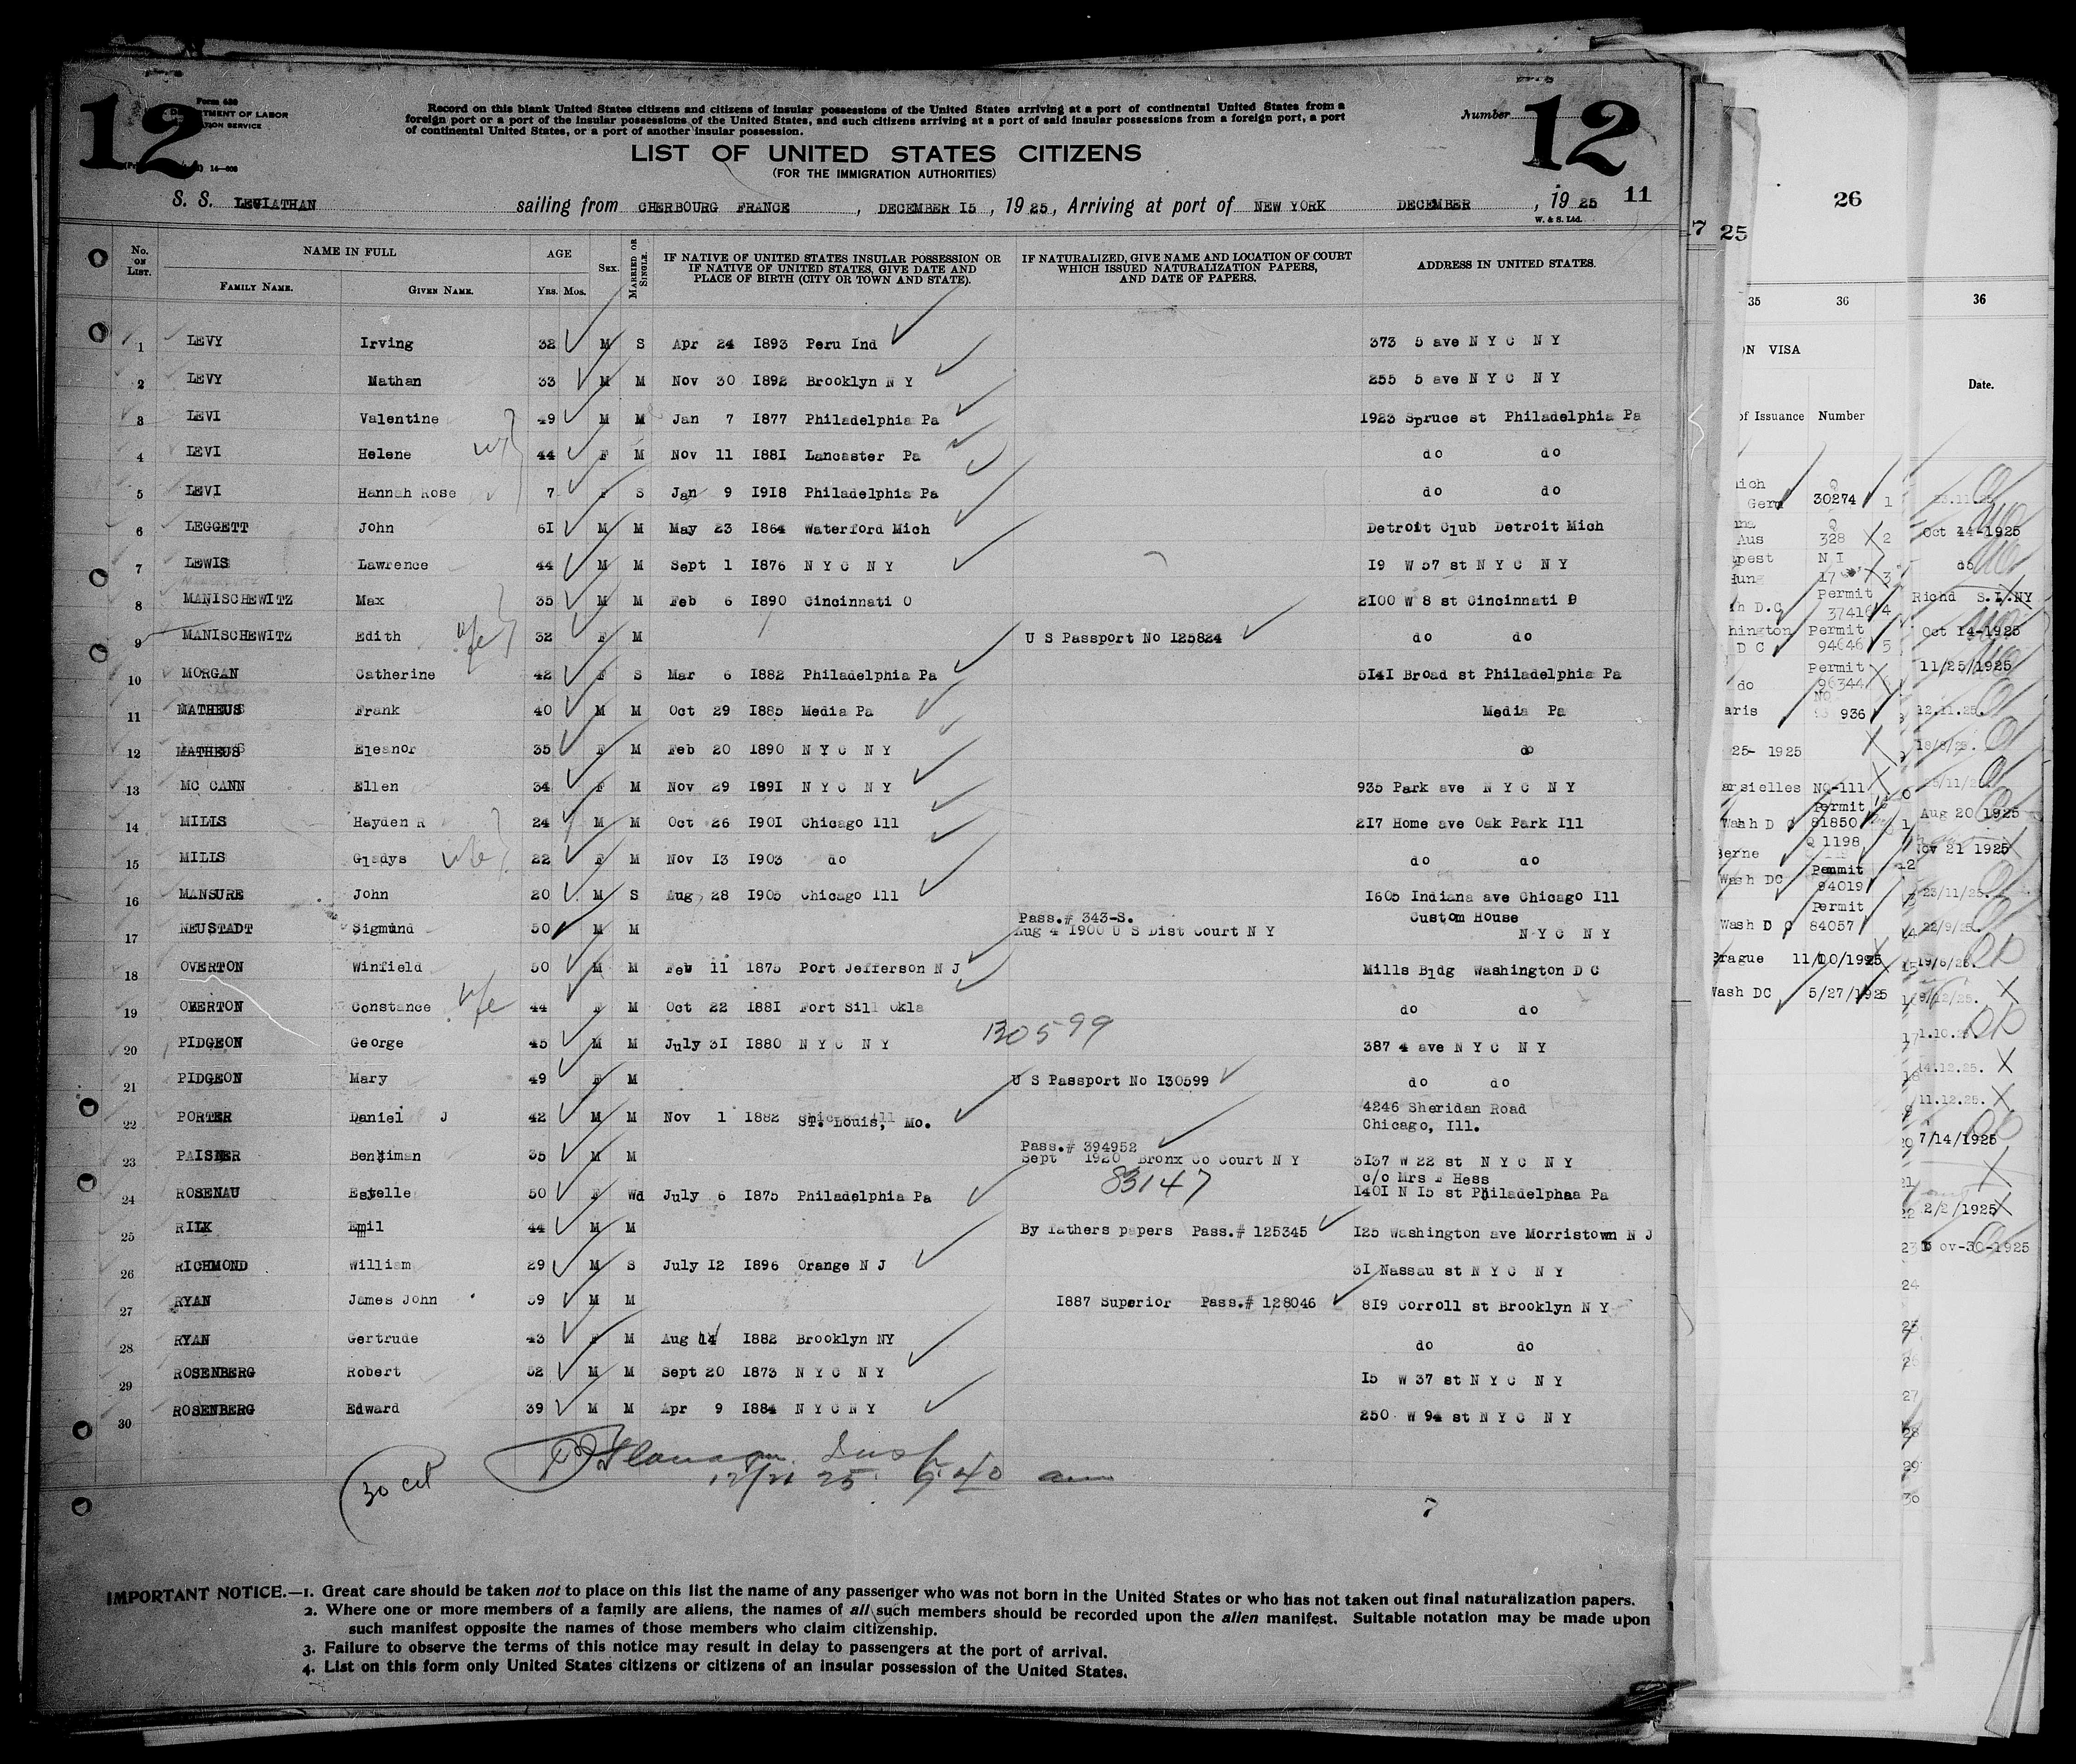 12
Form 630
DEPARTMENT OF LABOR
14—608
Record on this blank United States citizens and citizens of insular possessions of the United States arriving at a port of continental United States from a
foreign port or a port of the insular possessions of the United States, and such citizens arriving at a port of said insular possessions from a foreign port, a port
of continental United States, or a port of another insular possession.
Number 12
LIST OF UNITED STATES CITIZENS
(FOR THE IMMIGRATION AUTHORITIES)
11
S. S. LEVIATHAN sailing from CHERBOURG FRANCE, DECEMBER I5, 1925, Arriving at port of NEW YORK DECEMBER, 1925
W. & S. Ltd.
No. ON LIST. NAME IN FULL FAMILY NAME. GIVEN NAME. AGE YRS. MOS. SEX. MARRIED OR SINGLE. IF NATIVE OF UNITED STATES INSULAR POSSESSION OR IF NATIVE OF UNITED STATES, GIVE DATE AND PLACE OF BIRTH (CITY OR TOWN AND STATE). IF NATURALIZED, GIVE NAME AND LOCATION OF COURT WHICH ISSUED NATURALIZATION PAPERS, AND DATE OF PAPERS. ADDRESS IN UNITED STATES.
1 LEVY Irving 32 M S Apr 24 I893 Peru Ind 373 5 ave N Y C N Y
2 LEVY Nathan 33 M M Nov 30 I892 Brooklyn N Y 255 5 ave N Y C N Y
3 LEVI Valentine 49 M M Jan 7 I877 Philadelphia Pa I923 Spruce st Philadelphia Pa
4 LEVI Helene wf 44 F M Nov 11 I88I Lancaster Pa do do
5 LEVI Hannah Rose 7 F S Jan 9 I9I8 Philadelphia Pa do do
6 LEGGETT John 6I M M May 23 I864 Waterford Mich Detroit Club Detroit Mich
7 LEWIS Lawrence 44 M M Sept 1 I876 N Y C N Y I9 W 57 st N Y C N Y
8 MANISCHEWITZ Max 35 M M Feb 6 I890 Cincinnati O 2I00 W 8 st Cincinnati O
9 MANISCHEWITZ Edith wfe 32 F M U S Passport No I25824 do do
10 MORGAN Catherine 42 F S Mar 6 I882 Philadelphia Pa 5I4I Broad st Philadelphia Pa
11 MATHEUS Frank 40 M M Oct 29 I885 Media Pa Media Pa
12 MATHEUS Eleanor 35 F M Feb 20 I890 N Y C N Y do
13 MC CANN Ellen 34 F M Nov 29 I89I N Y C N Y 935 Park ave N Y C N Y
14 MILLS Hayden R 24 M M Oct 26 I90I Chicago Ill 2I7 Home ave Oak Park Ill
15 MILLS Gladys wfe 22 F M Nov I3 I903 do do do
16 MANSURE John 20 M S Aug 28 I905 Chicago Ill I605 Indiana ave Chicago Ill
17 NEUSTADT Sigmund 50 M M Pass.# 343-S. Aug 4 I900 U S Dist Court N Y Custom House N Y C N Y
18 OVERTON Winfield 50 M M Feb 11 I875 Port Jefferson N J Mills Bldg Washington D C
19 OVERTON Constance wfe 44 F M Oct 22 I88I Fort Sill Okla do do
130599
20 PIDGEON George 45 M M July 3I I880 N Y C N Y 387 4 ave N Y C N Y
21 PIDGEON Mary 49 F M U S Passport No I30599 do do
22 PORTER Daniel J 42 M M Nov 1 I882 ST. Louis, Mo. 4246 Sheridan Road Chicago, Ill.
23 PAISNER Benjiman 35 M M Pass.# 394952 Sept 1920 Bronx Co Court N Y 3I37 W 22 st N Y C N Y
24 ROSENAU Estelle 50 F Wd July 6 I875 Philadelphia Pa 83147 c/o Mrs F Hess I40I N I5 st Philadelphaa Pa
25 RILK Emil 44 M M By fathers papers Pass.# 125345 I25 Washington ave Morristown N J
26 RICHMOND William 29 M S July I2 I896 Orange N J 3I Nassau st N Y C N Y
27 RYAN James John 59 M M I887 Superior Pass.# 128046 8I9 Corroll st Brooklyn N Y
28 RYAN Gertrude 43 F M Aug 14 I882 Brooklyn NY do do
29 ROSENBERG Robert 52 M M Sept 20 I873 N Y C N Y I5 W 37 st N Y C N Y
30 ROSENBERG Edward 39 M M Apr 9 I884 N Y C N Y 250 W 94 st N Y C N Y
30 cit
12/21 25 9:40 am
7
IMPORTANT NOTICE.—1. Great care should be taken not to place on this list the name of any passenger who was not born in the United States or who has not taken out final naturalization papers.
2. Where one or more members of a family are aliens, the names of all such members should be recorded upon the alien manifest. Suitable notation may be made upon
such manifest opposite the names of those members who claim citizenship.
3. Failure to observe the terms of this notice may result in delay to passengers at the port of arrival.
4. List on this form only United States citizens or citizens of an insular possession of the United States.
7 25 26
35 36 36
VISA
Date.
of Issuance Number
30274 1
Aus 328 2 Oct 14-1925
N I do
17 3
Permit
D.C 37416 4 Richd S.I.NY
Permit Oct 14-1925
D C 94646 5
Permit 11/25/1925
do 96344
936 12.11.25.
25- 1925
NQ-111
Permit
Wash D C 81850 Aug 20 1925
Q 1198
Berne Nov 21 1925
Wash DC Permit 12
94019 23/11/25.
Permit
Wash D C 84057 22/9/25.
Prague 11/10/1925
Wash DC 5/27/1925
17 1.10.25.
14.12.25.
11.12.25.
7/14/1925
22 2/2/1925
23 Nov-30-1925
24
25
26
27
28
29
30